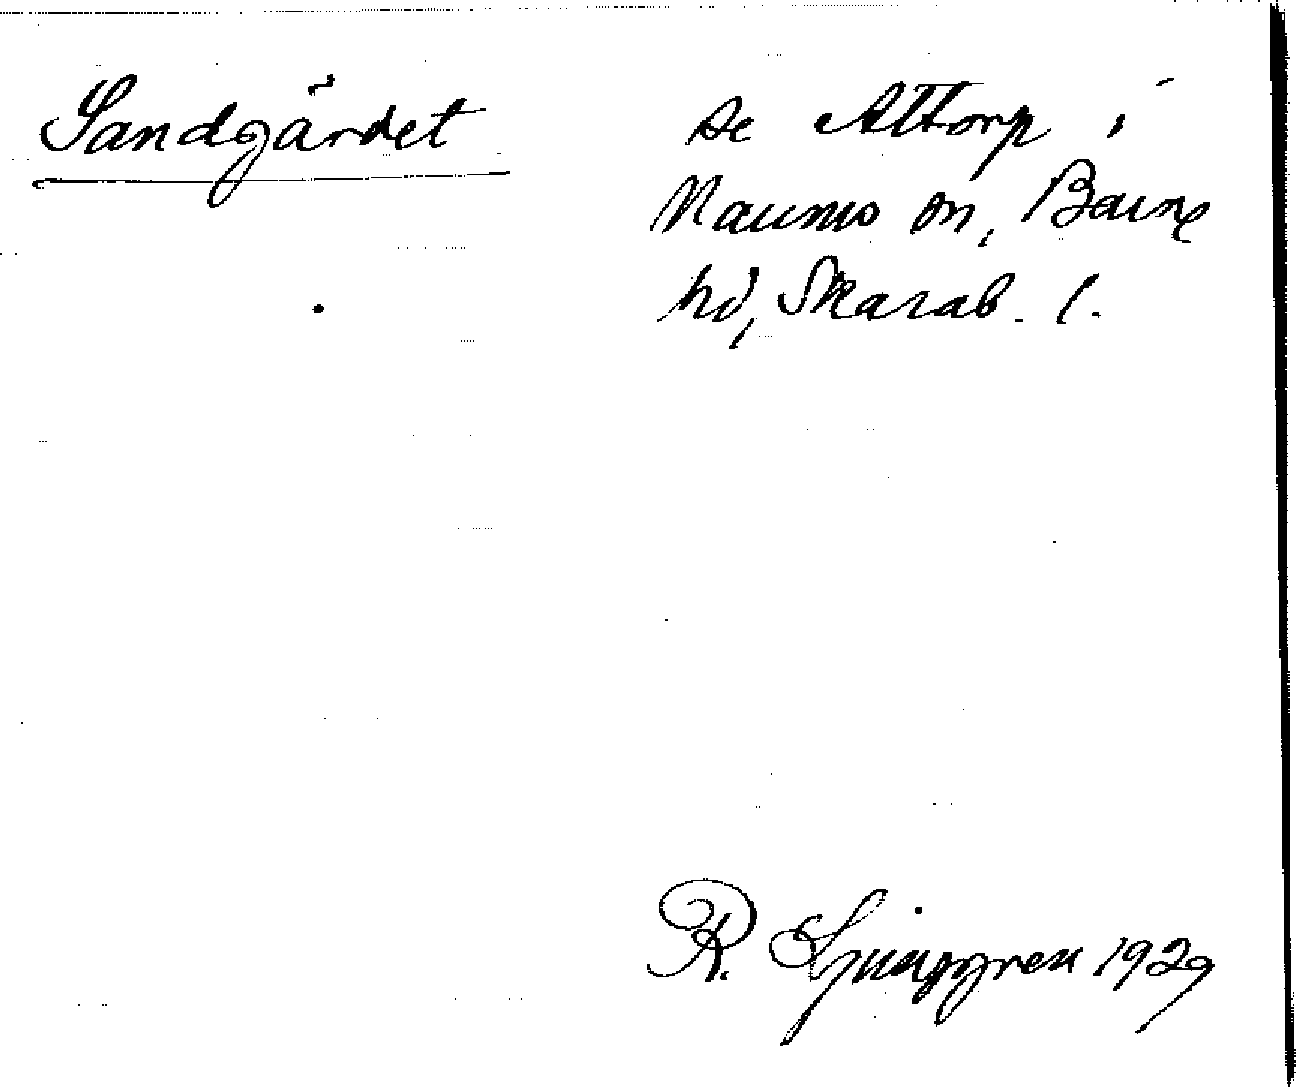 Sandgärdet
Se Attorp i
Naumo sn, Barne
hd, Skarab. l.
R. Ljunggren 1929